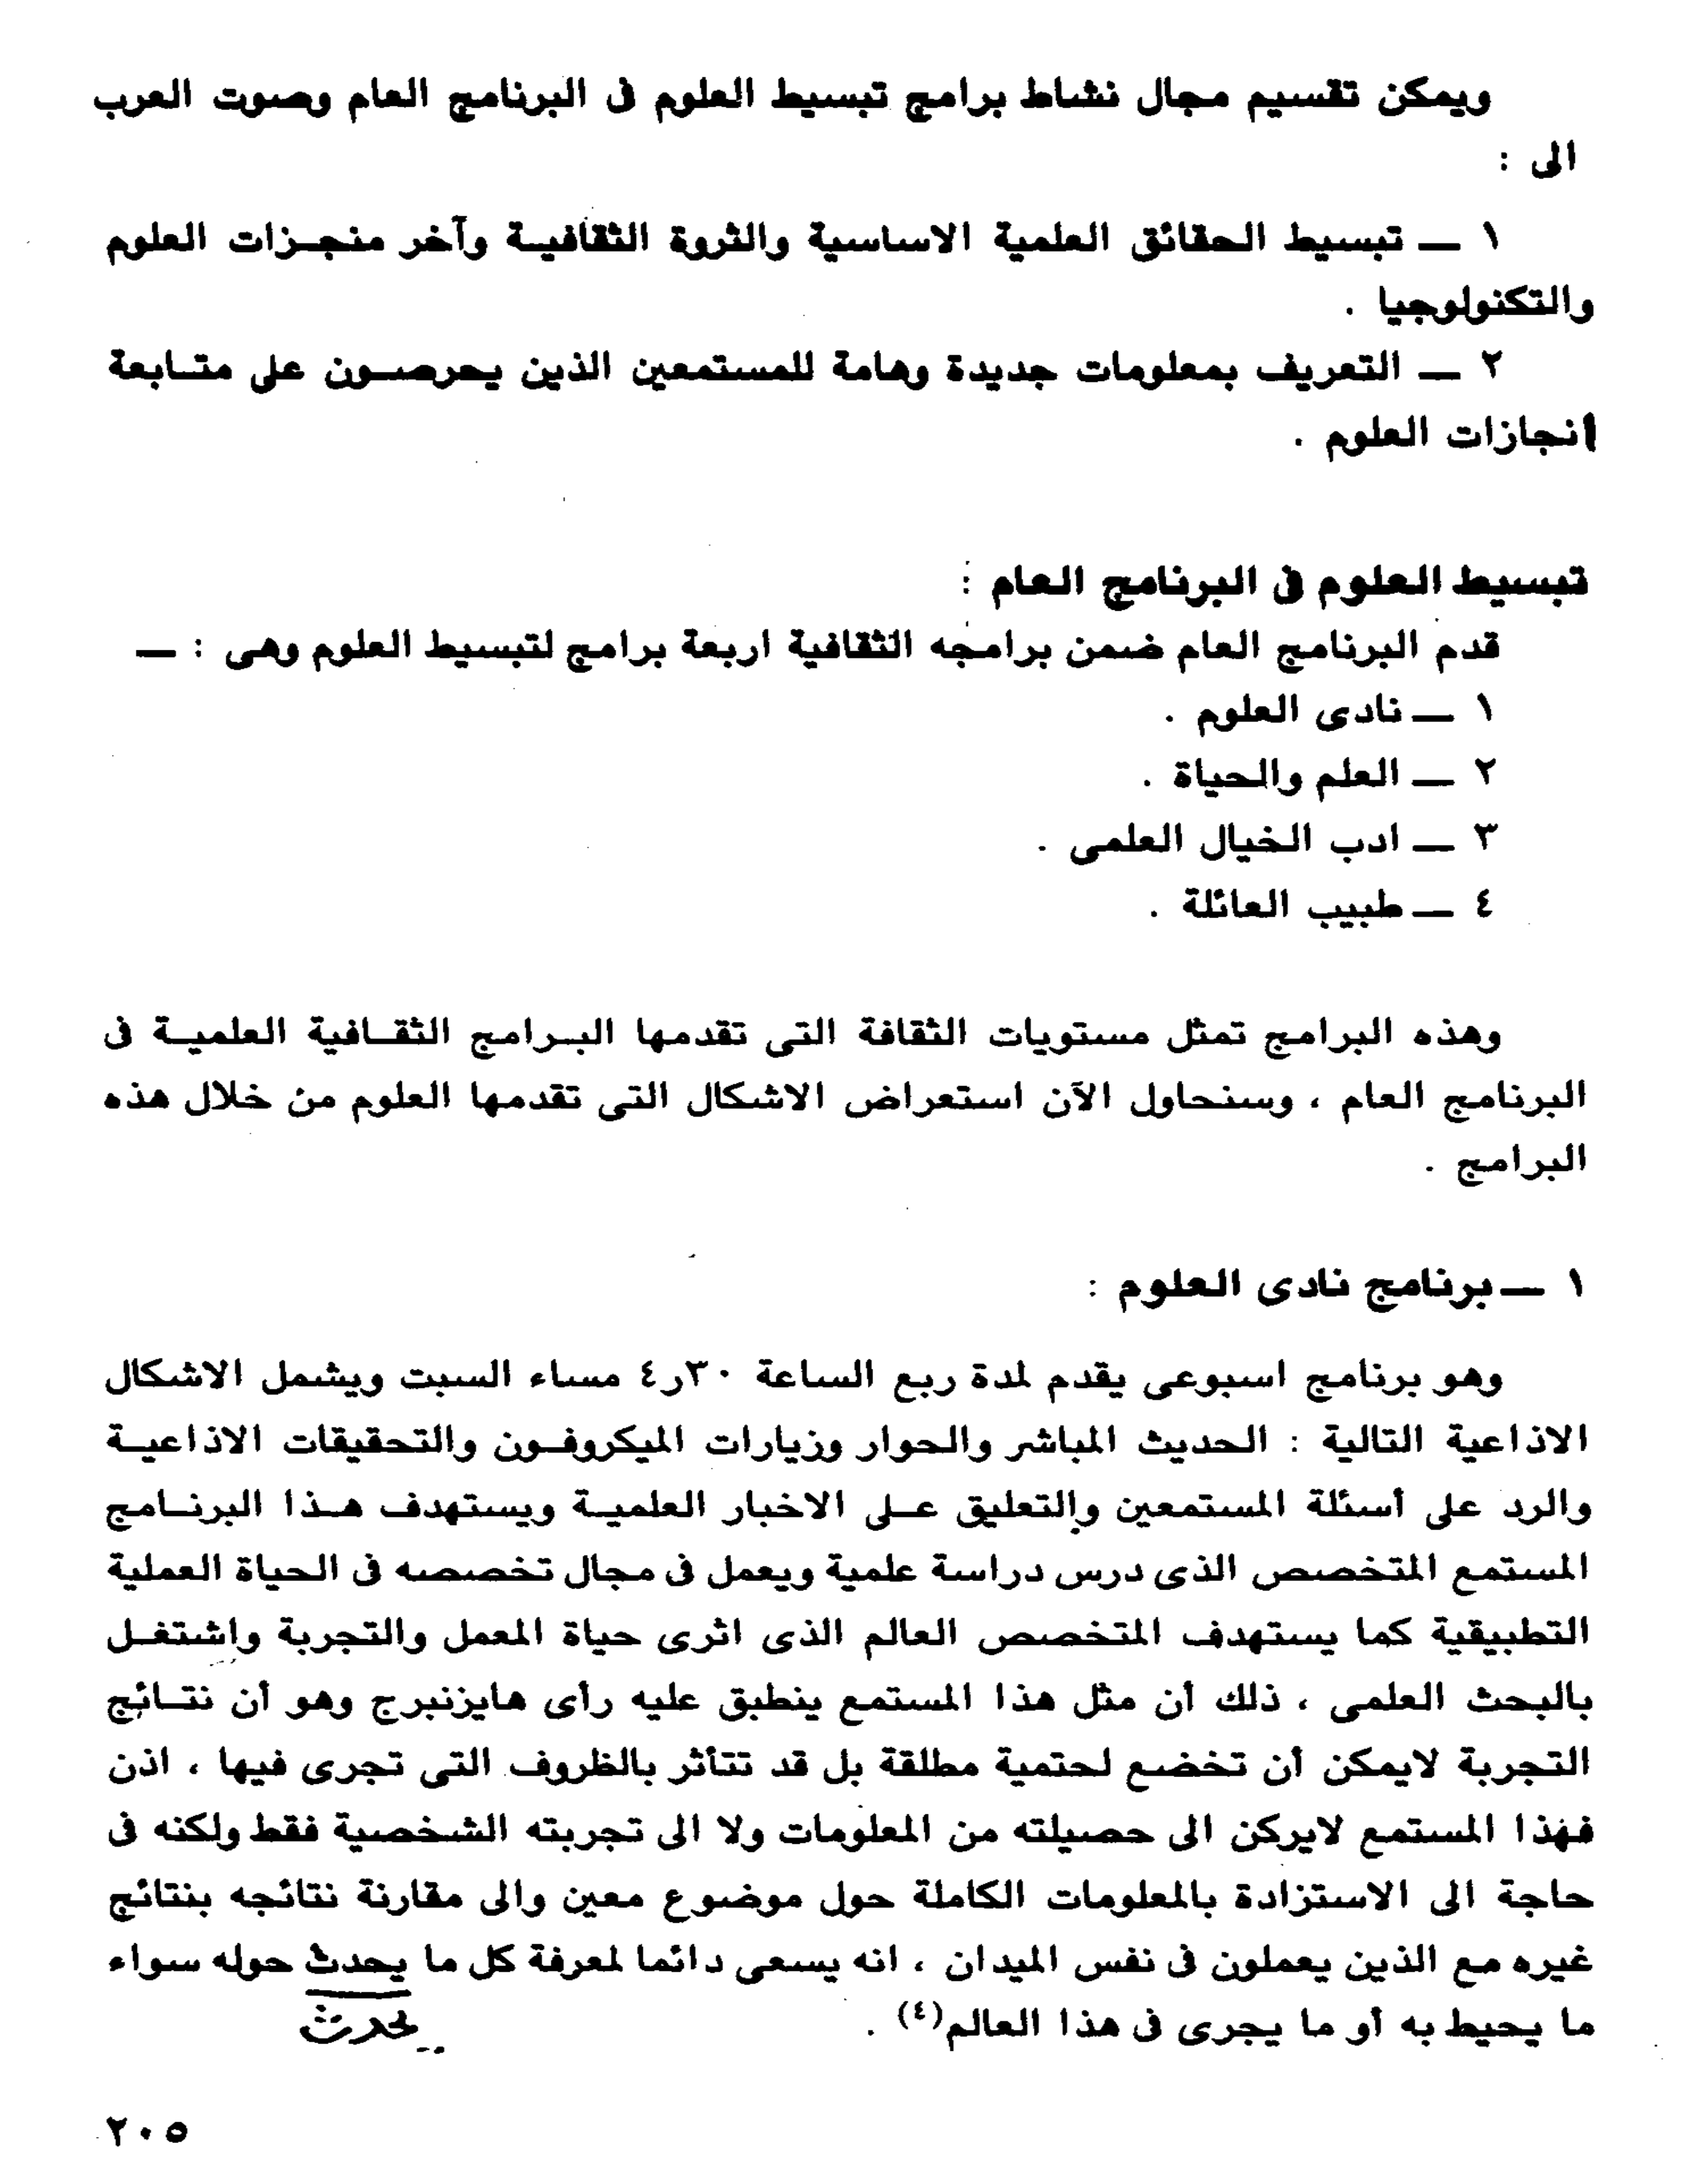 ويمكن تقسيم مجال نشاط برامج تبسيط العلوم فى البرنامج العام وصوت العرب
الى :
١ — تبسيط الحقائق العلمية الاساسية والثروة الثقافيـة وآخر منجـزات العلوم
والتكنولوجيا .
٢ — التعريف بمعلومات جديدة وهامة للمستمعين الذين يحرصـون على متـابعة
انجازات العلوم .
تبسيط العلوم فى البرنامج العام :
قدم البرنامج العام ضمن برامجه الثقافية اربعة برامج لتبسيط العلوم وهى : —
١ — نادى العلوم .
٢ — العلم والحياة .
٣ — ادب الخيال العلمى .
٤ — طبيب العائلة .
وهذه البرامج تمثل مستويات الثقافة التى تقدمها البـرامج الثقـافية العلميـة فى
البرنامج العام ، وسنحاول الآن استعراض الاشكال التى تقدمها العلوم من خلال هذه
البرامج .
١ — برنامج نادى العلوم :
وهو برنامج اسبوعى يقدم لمدة ربع الساعة ٣٠ر٤ مساء السبت ويشمل الاشكال
الاذاعية التالية : الحديث المباشر والحوار وزيارات الميكروفـون والتحقيقات الاذاعيـة
والرد على أسئلة المستمعين والتعليق عـلى الاخبار العلميـة ويستهدف هـذا البرنـامج
المستمع المتخصص الذى درس دراسة علمية ويعمل فى مجال تخصصه فى الحياة العملية
التطبيقية كما يستهدف المتخصص العالم الذى اثرى حياة المعمل والتجربة واشتغـل
بالبحث العلمى ، ذلك أن مثل هذا المستمع ينطبق عليه رأى هايزنبرج وهو أن نتـائج
التجربة لايمكن أن تخضع لحتمية مطلقة بل قد تتأثر بالظروف التى تجرى فيها ، اذن
فهذا المستمع لايركن الى حصيلته من المعلومات ولا الى تجربته الشخصية فقط ولكنه فى
حاجة الى الاستزادة بالمعلومات الكاملة حول موضوع معين والى مقارنة نتائجه بنتائج
غيره مع الذين يعملون فى نفس الميدان ، انه يسعى دائما لمعرفة كل ما يحدث حوله سواء
ما يحيط به أو ما يجرى فى هذا العالم(٤) .
يحدث
٢٠٥